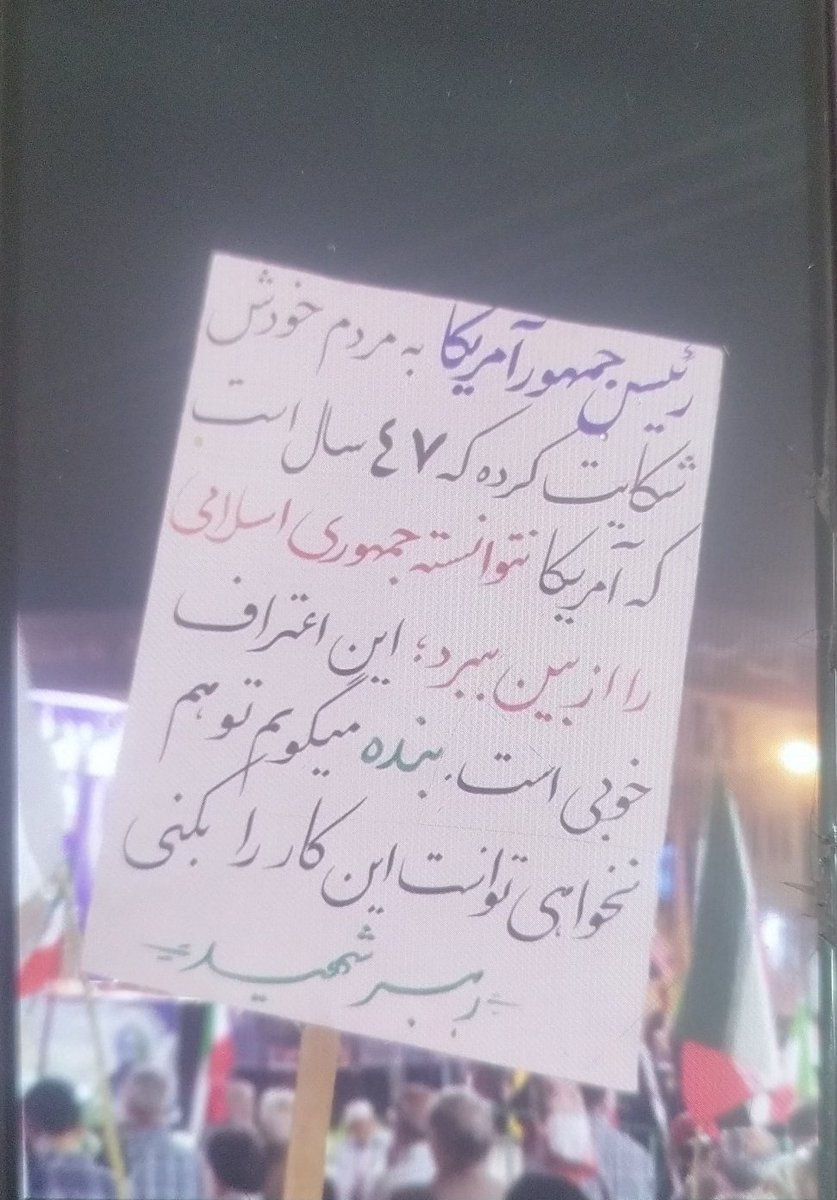 رئیس جمهور آمریکا به مردم خودش
شکایت کرده که ۴۷ سال است
که آمریکا نتوانسته جمهوری اسلامی
را از بین ببرد؛ این اعتراف
خوبی است. بنده میگویم تو هم
نخواهی توانست این کار را بکنی
رهبر شهید